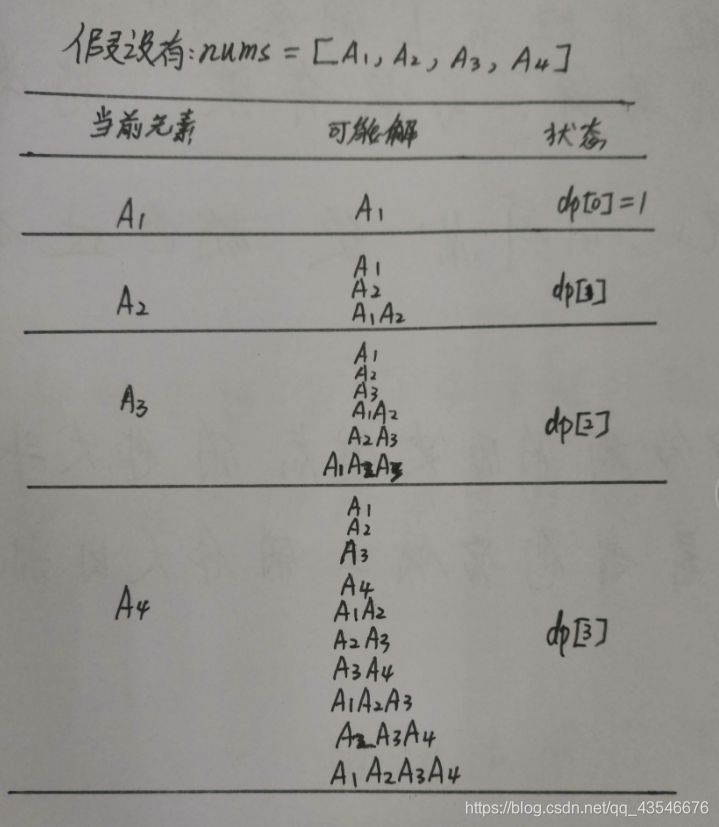 假设有:nums = [A1, A2, A3, A4]
当前元素 可能解 状态
A1 A1 dp[0]=1
A1
A2
A1A2
A2 dp[1]
A1
A2
A3
A1A2
A2A3
A1A2A3
A3 dp[2]
A1
A2
A3
A4
A1A2
A2A3
A3A4
A1A2A3
A2A3A4
A1A2A3A4
A4 dp[3]
https://blog.csdn.net/qq_43546676